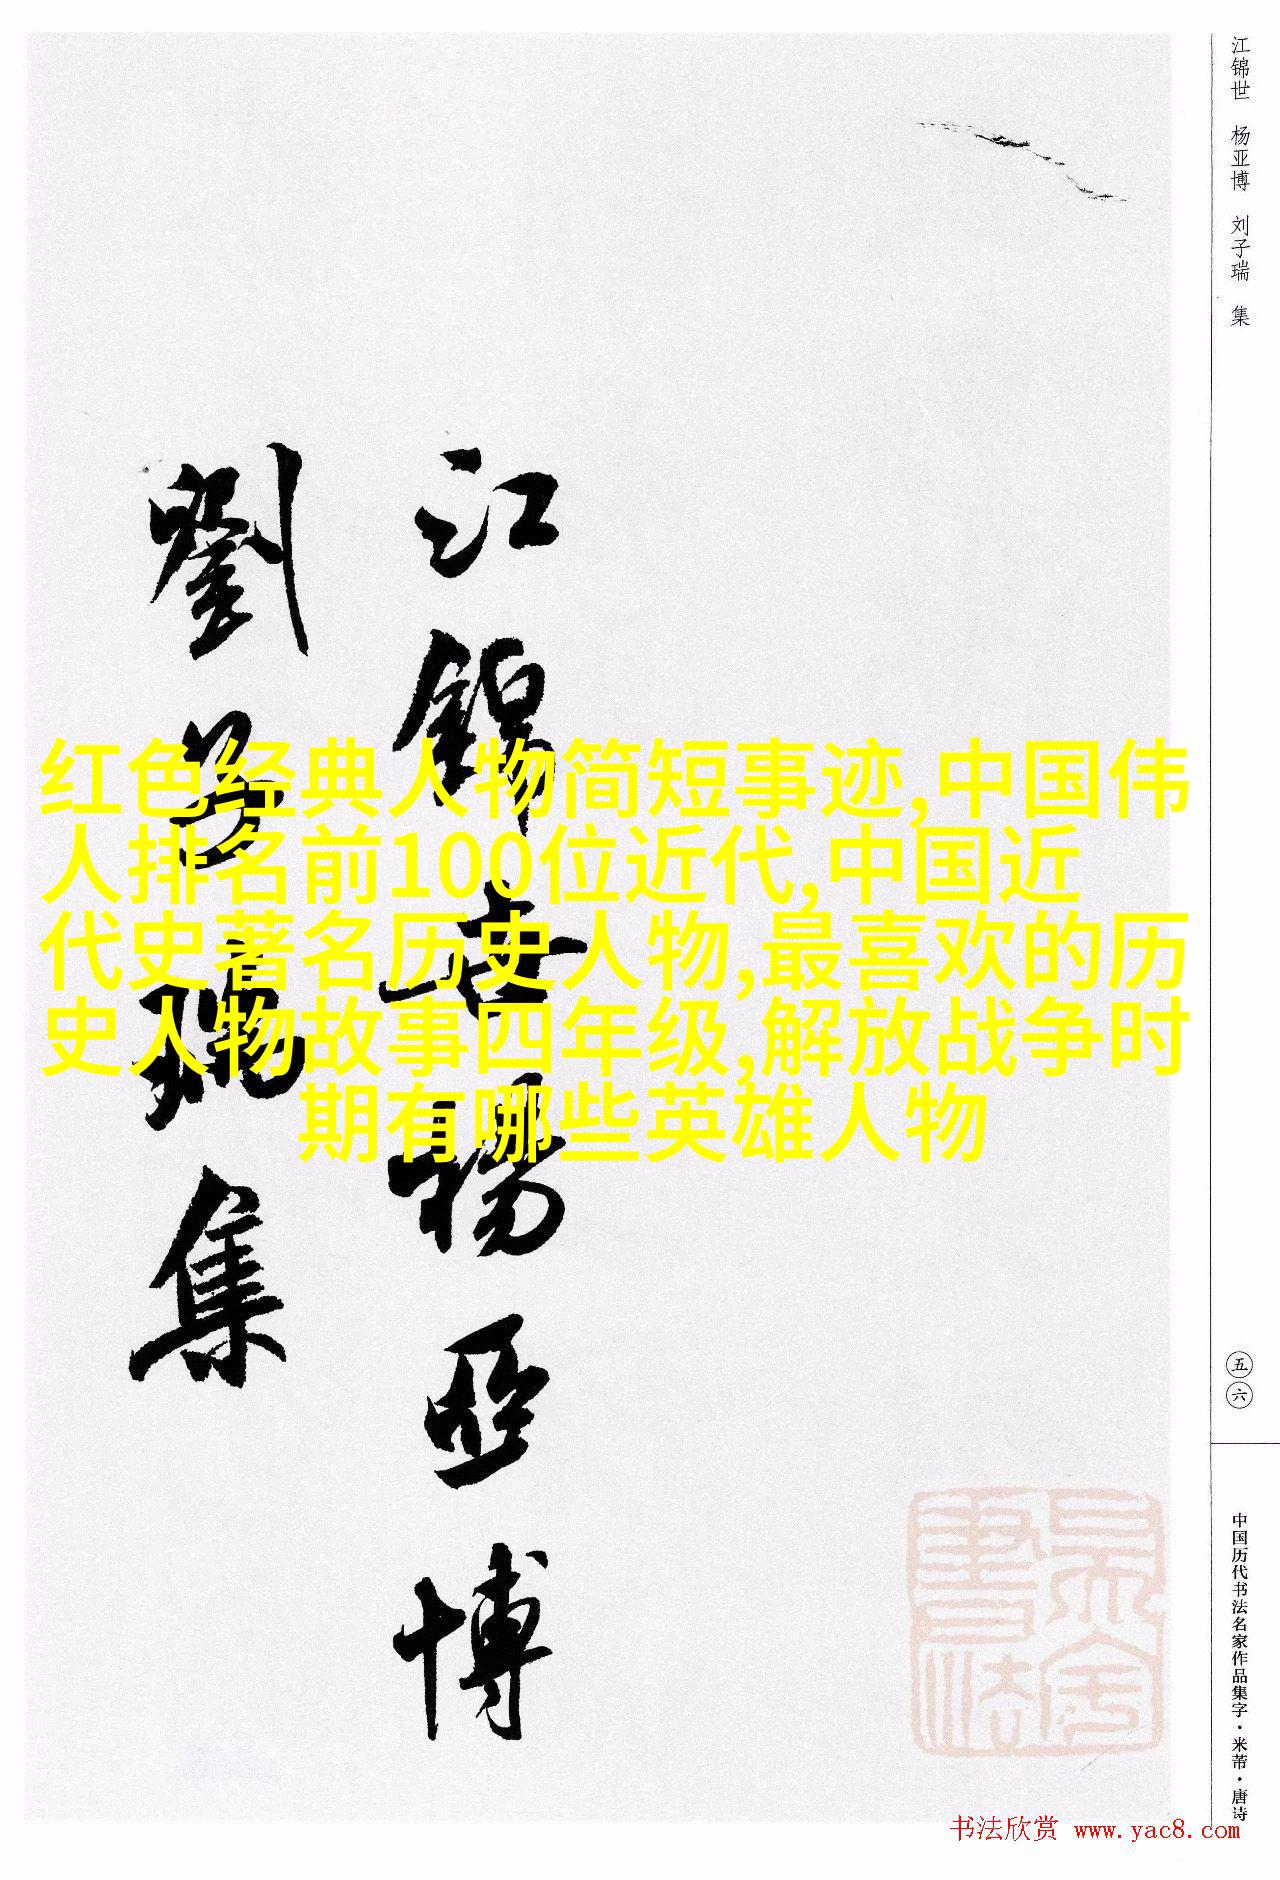 江锦世 杨亚博 刘子瑞 集
江錦世楊亞博
劉子瑞集
红色经典人物简短事迹,中国伟
人排名前100位近代,中国近
代史著名历史人物,最喜欢的历
史人物故事四年级,解放战争时
期有哪些英雄人物
五六
中国历代书法名家作品集字·米芾·唐诗
书法欣赏 www.yac8.com